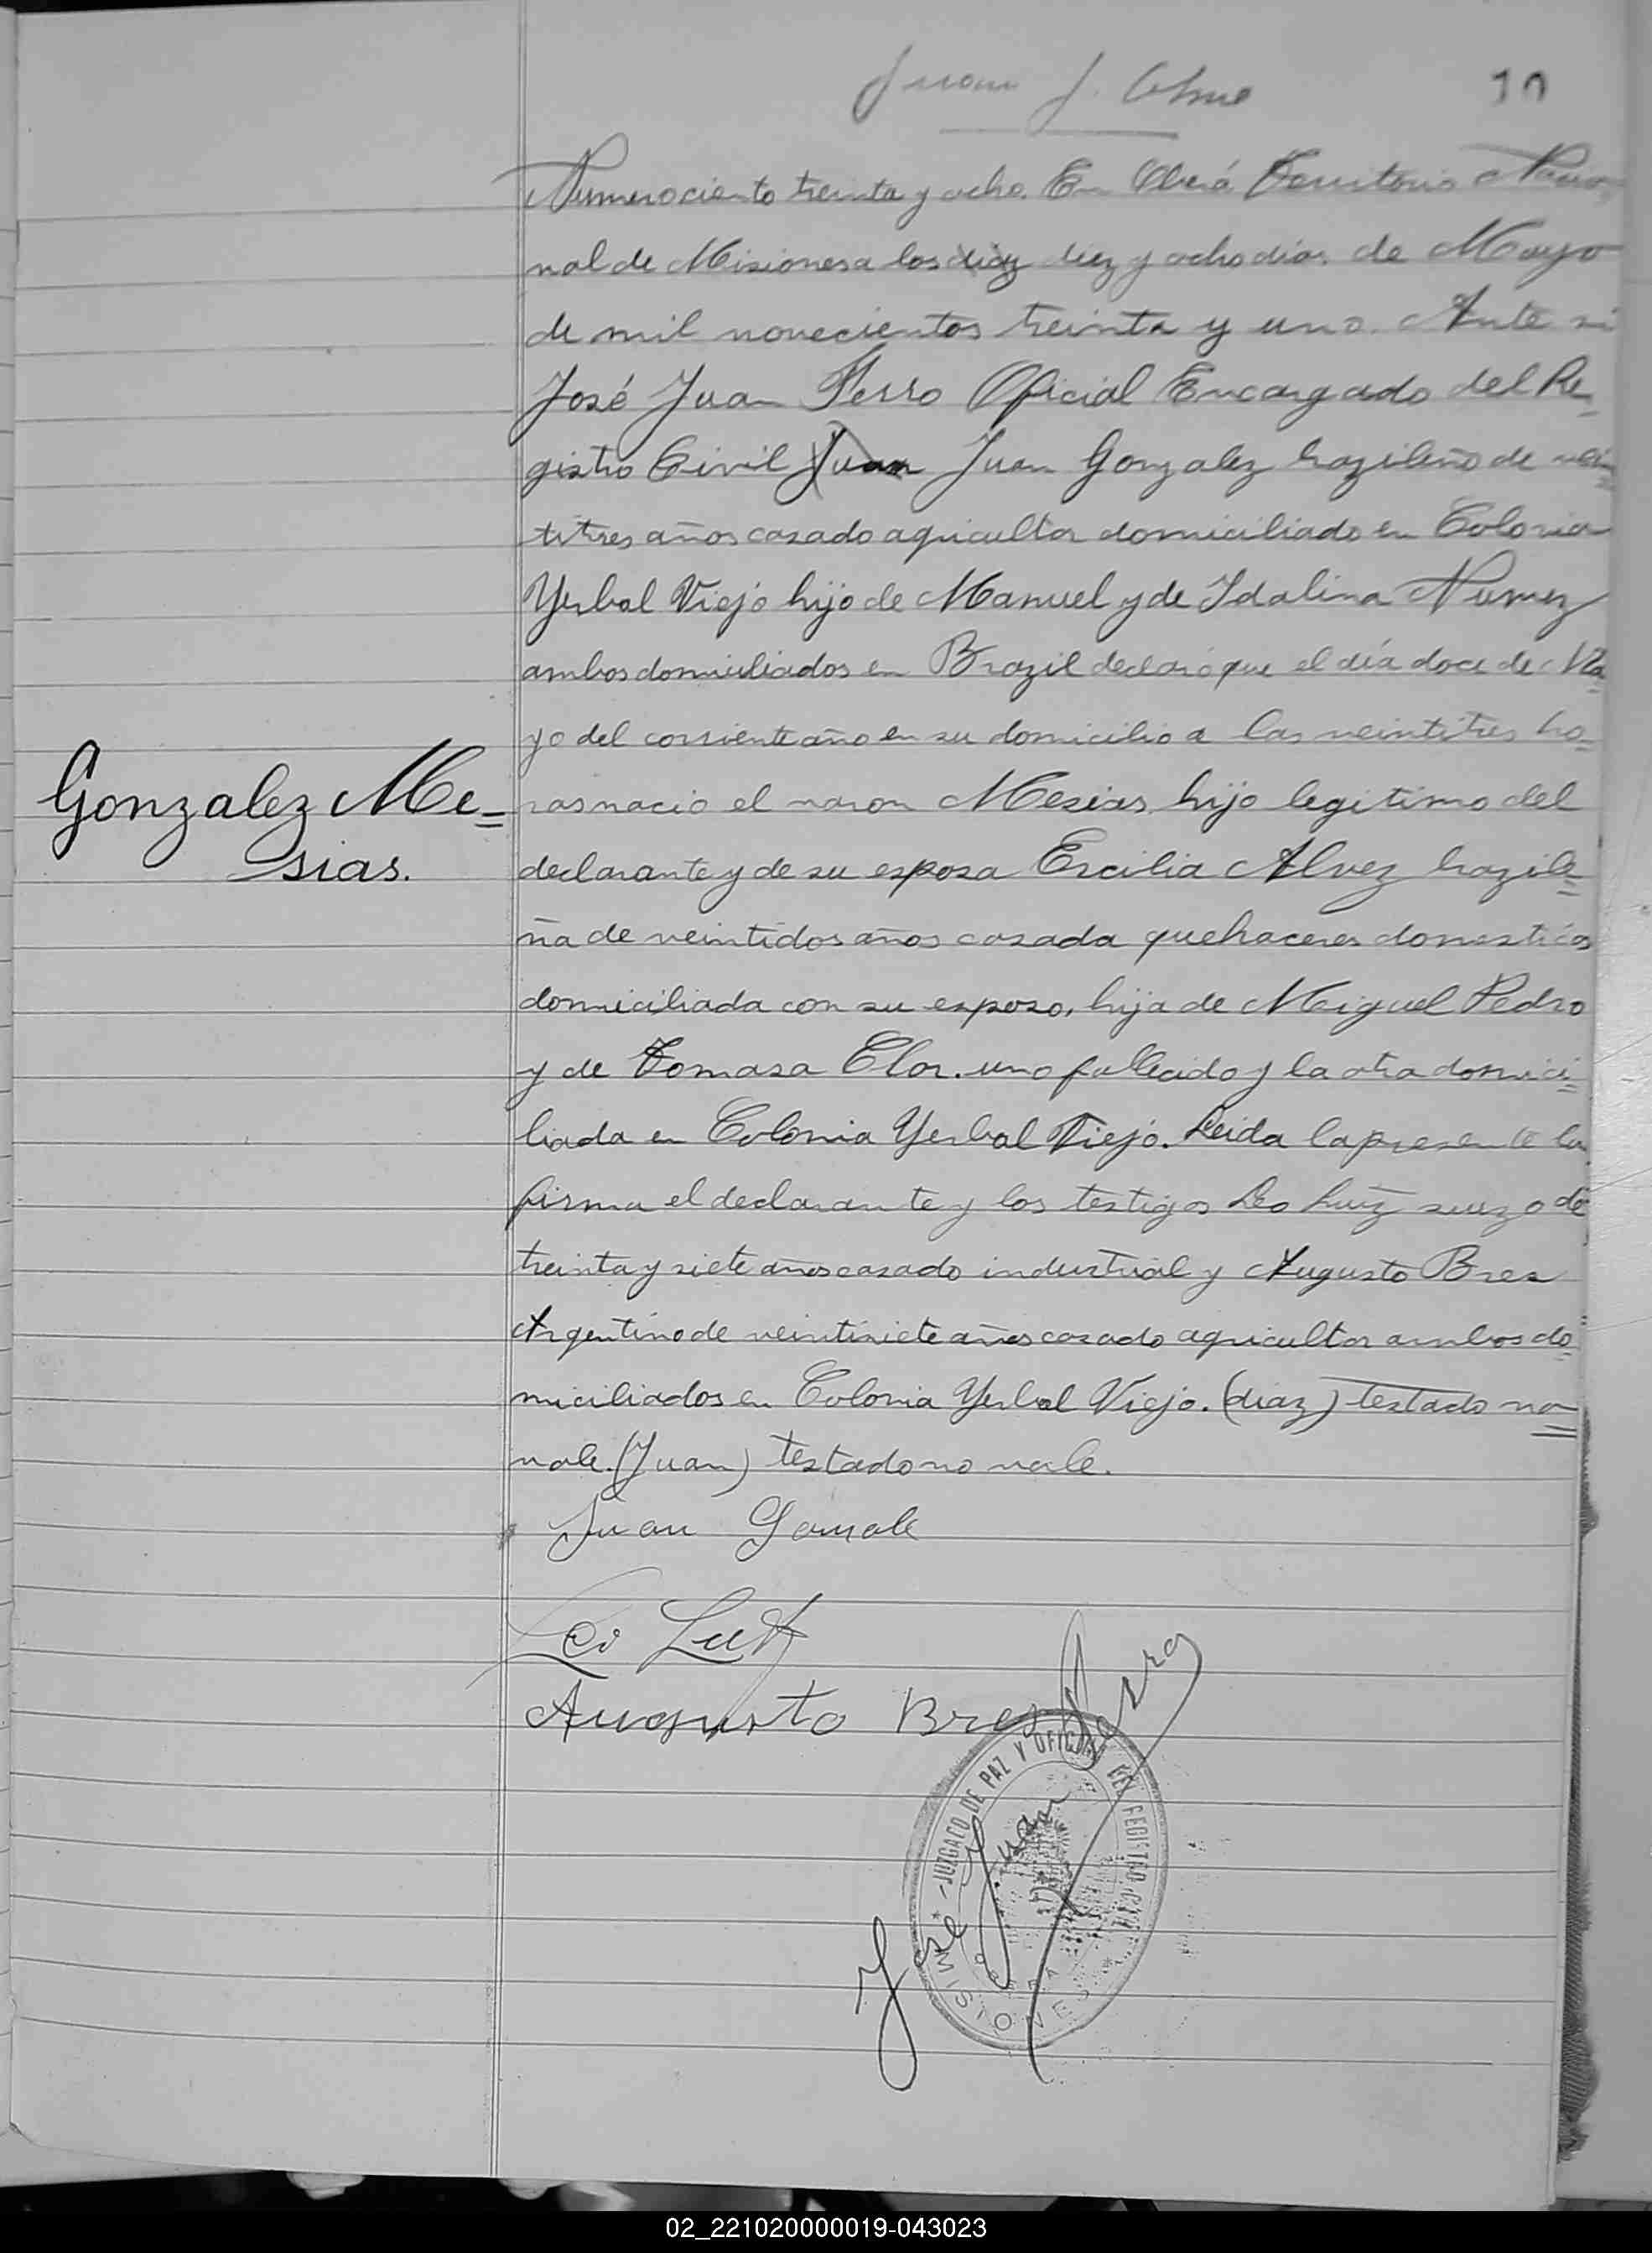 Juan J.
10
Numero ciento treinta y ocho. En Oberá Territorio Nacio
nal de Misiones a los diaz diez y ocho dias de Mayo
de mil novecientos treinta y uno. Ante mi
José Juan Ferro Oficial Encargado del Re=
gistro Civil Juan Juan Gonzalez brazileño de vein=
titres años casado agricultor domiciliado en Colonia
Yerbal Viejo hijo de Manuel y de Idalina Numez
ambos domiciliados en Brazil declaró que el día doce de Ma=
yo del corriente año en su domicilio a las veintitres ho=
Gonzalez Me=
sias.
ras nacio el varon Mesias, hijo legitimo del
declarante y de su esposa Ercilia Alvez brazile=
ña de veintidos años casada quehaceres domesticos
domiciliada con su esposo, hija de Miguel Pedro
y de Tomasa Clor. uno fallecido y la otra domici=
liada en Colonia Yerbal Viejo. Leida la presente la
firma el declarante y los testigos Leo Luiz suizo de
treinta y siete años casado industrial y Augusto Bres
Argentino de veintisiete años casado agricultor ambos do=
miciliados en Colonia Yerbal Viejo. (diaz) testado no=
vale. (Juan) testado no vale.
Juan Gonzale
Leo Lutz
Augusto Bres
José Juan Ferro
JUZGADO DE PAZ Y OFICINA DEL REGISTRO CIVIL
OBERA
MISIONES
02_221020000019-043023